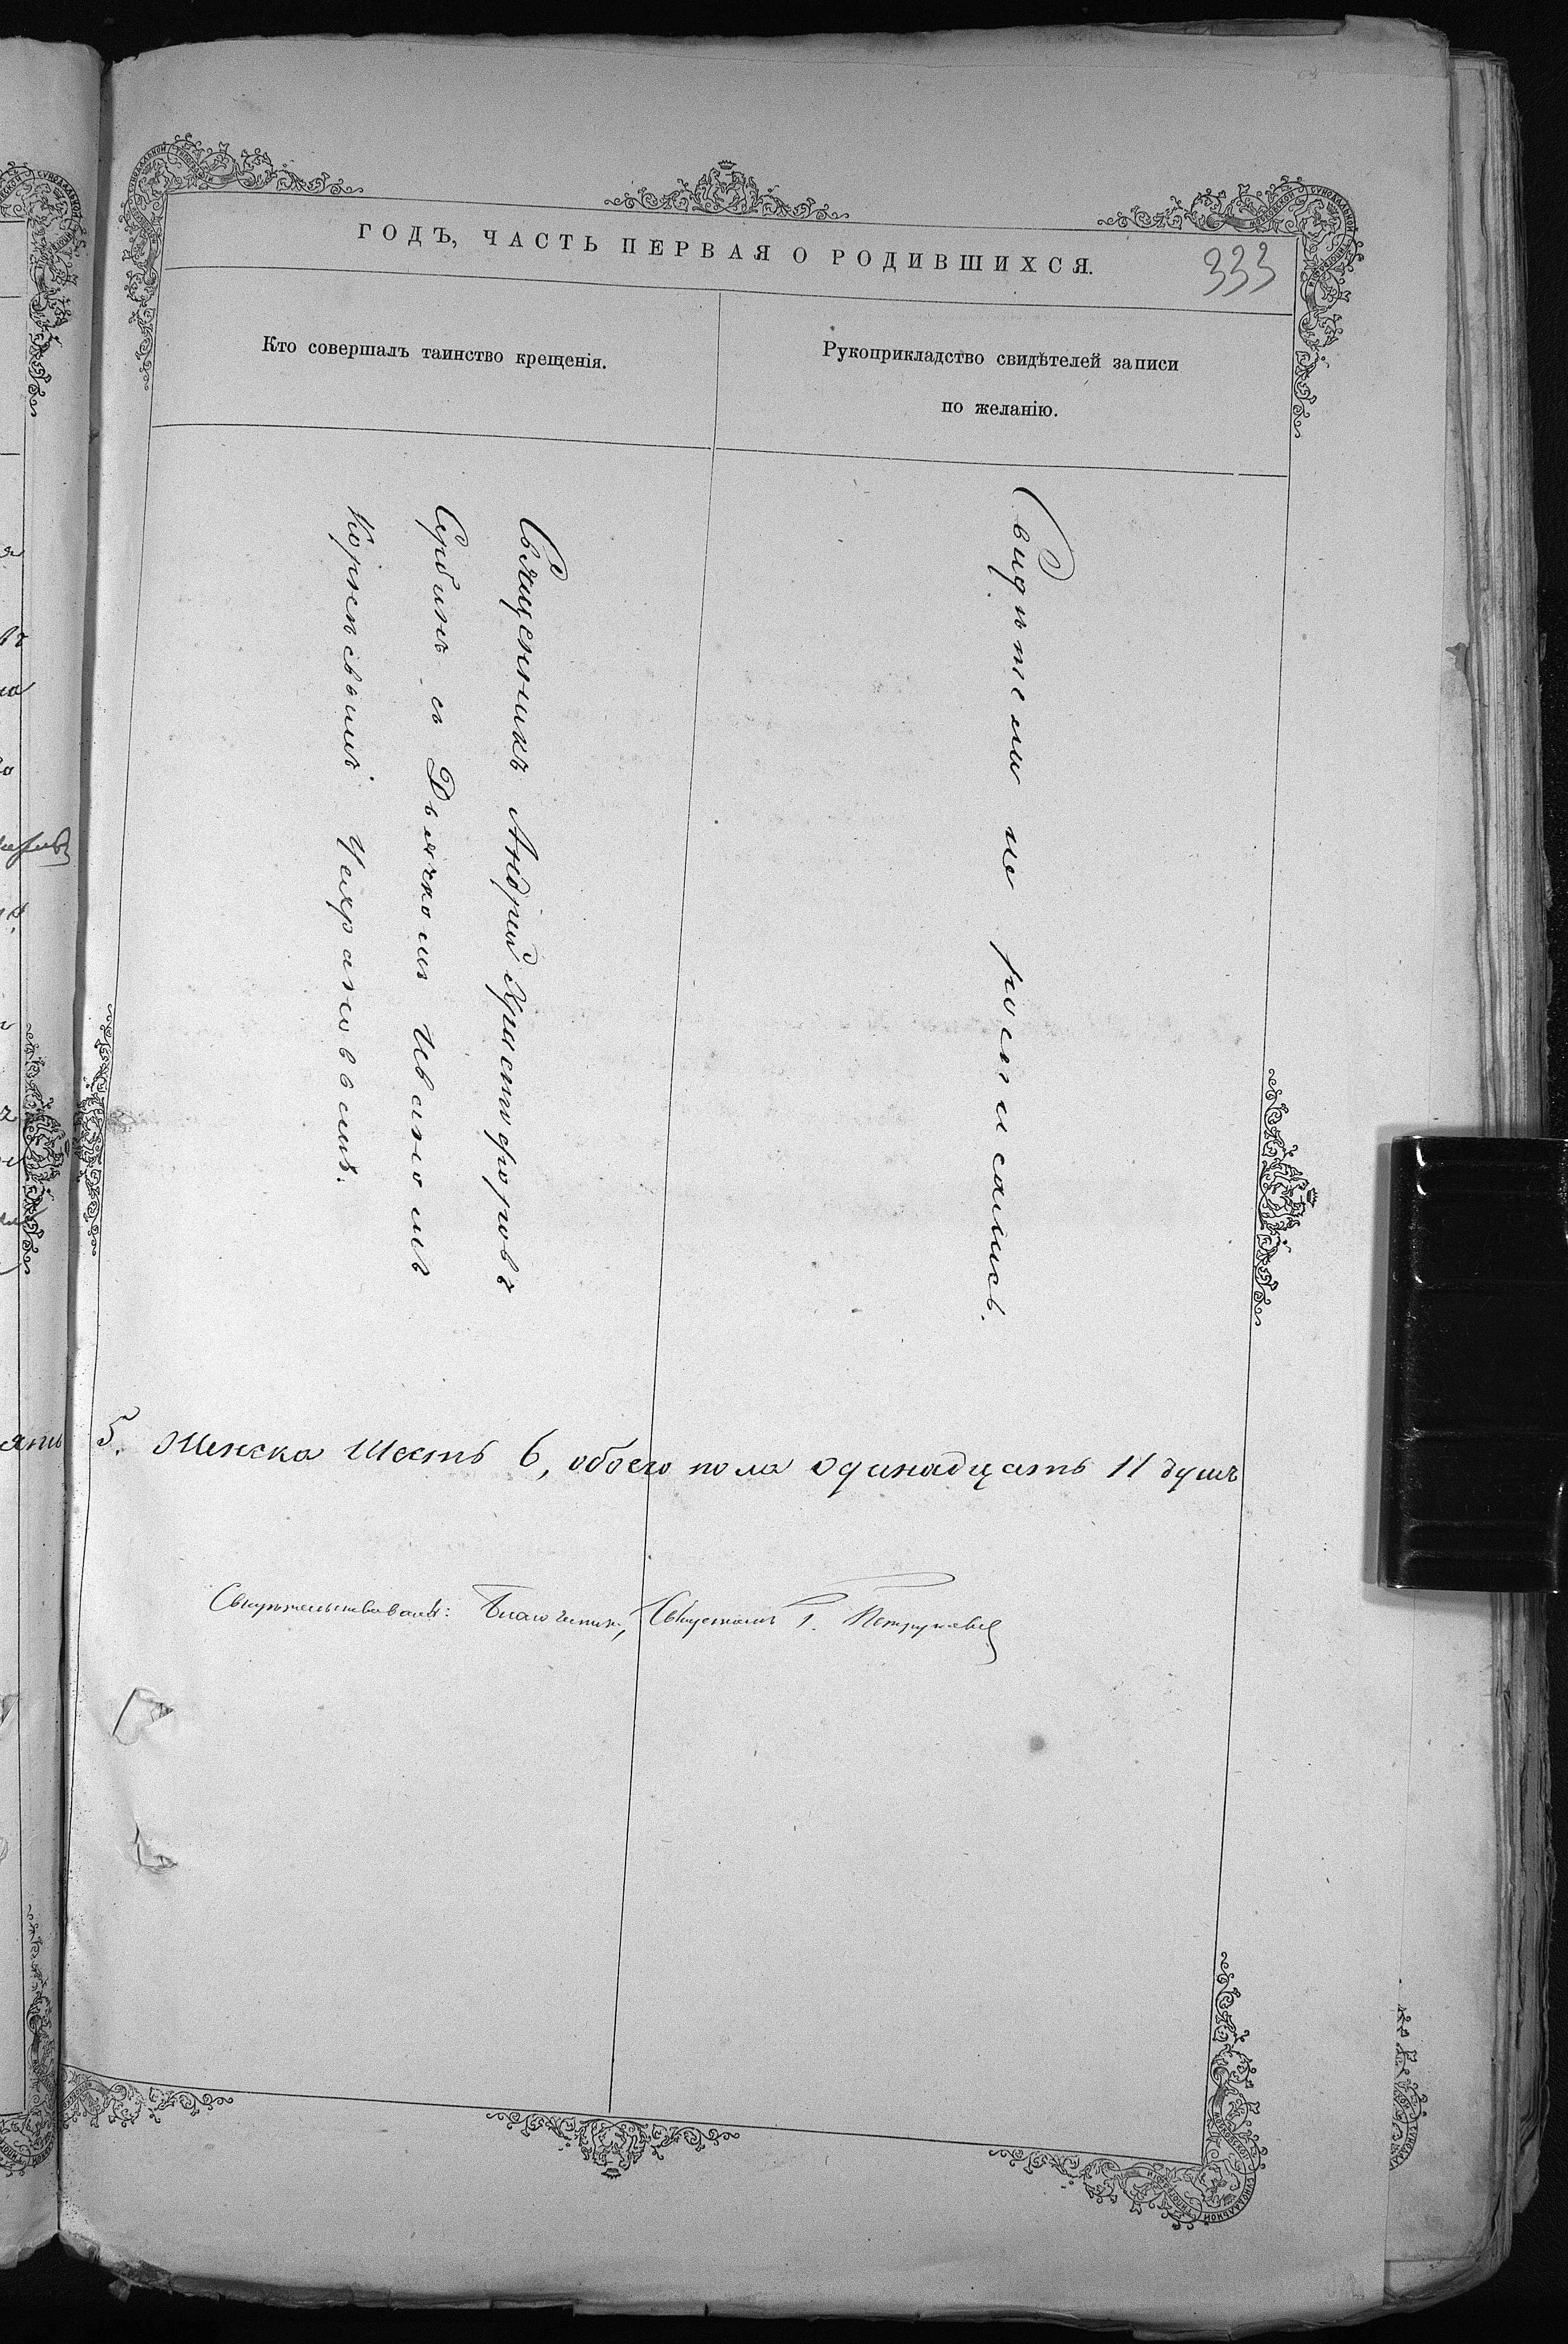 ГОДЪ, ЧАСТЬ ПЕРВАЯ О РОДИВШИХСЯ.
333
Кто совершалъ таинство крещенія.
Рукоприкладство свидѣтелей записи
по желанію.
Священникъ Андрей Христофоровъ
Сербинъ съ Дьячкомъ Иваномъ
Корнѣевымъ
Свидѣтели не росписались.
5. Женска Шесть 6, обоего пола одинадцать 11 душъ
Свидѣтельствовалъ: Благочинный, Священникъ Г.